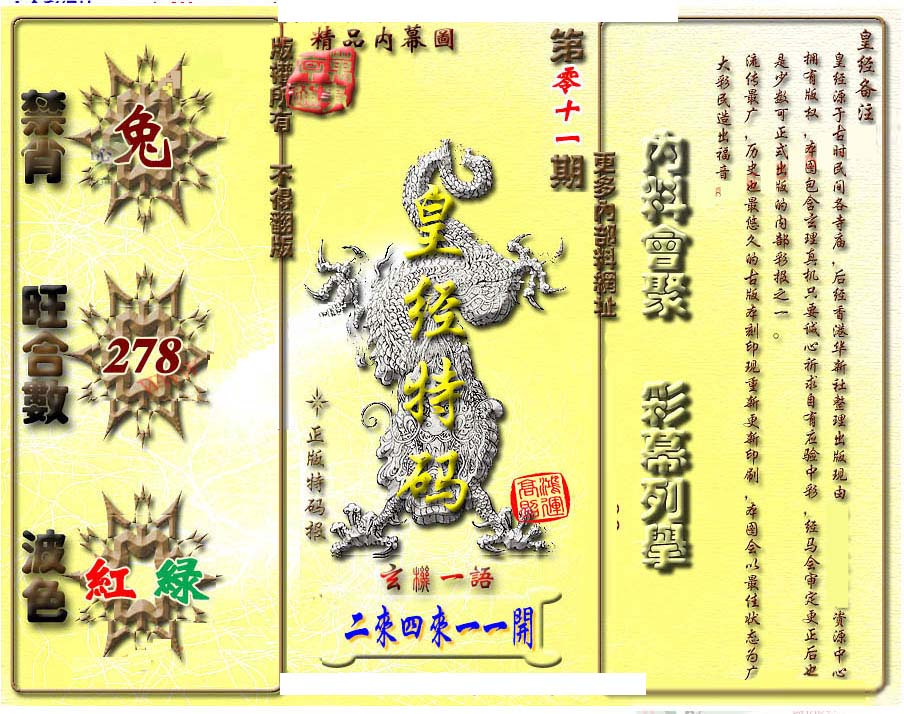 精品内幕圖
第零十一期
版權所有 不得翻版
更多內部料網址
禁肖
兔
旺合數
278
波色
紅 綠
皇经特码
正版特码报
鴻運高照
玄機一語
二來四來一一開
內料會聚
彩幕列舉
皇经备注
皇经源于古时民间各寺庙，后经香港华新社整理出版现由 资源中心
拥有版权，本图包含玄理真机只要诚心祈求自有应验中彩，经马会审定更正后也
是少数可正式出版的内部彩报之一。
流传最广，历史也最悠久的古版本刻印现重新更新印刷，本图会以最佳状态为广
大彩民造出福音